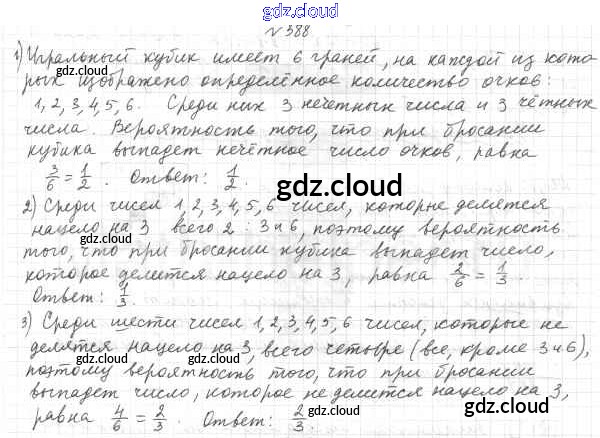 gdz.cloud
№388
1) Игральный кубик имеет 6 граней, на каждой из кото
рых изображено определённое количество очков:
1, 2, 3, 4, 5, 6. Среди них 3 нечётных числа и 3 чётных
числа. Вероятность того, что при бросании
кубика выпадет нечётное число очков, равна
3/6 = 1/2. Ответ: 1/2.
gdz.cloud
2) Среди чисел 1, 2, 3, 4, 5, 6 чисел, которые делятся
нацело на 3 всего 2 : 3 и 6, поэтому вероятность
того, что при бросании кубика выпадет число,
которое делится нацело на 3, равна 2/6 = 1/3.
Ответ: 1/3.
3) Среди шести чисел 1, 2, 3, 4, 5, 6 чисел, которые не
делятся нацело на 3, всего четыре (все, кроме 3 и 6),
поэтому вероятность того, что при бросании
выпадет число, которое не делится нацело на 3,
равна 4/6 = 2/3. Ответ: 2/3.
gdz.cloud
gdz.cloud
gdz.cloud
gdz.cloud
gdz.cloud
gdz.cloud
gdz.cloud
gdz.cloud